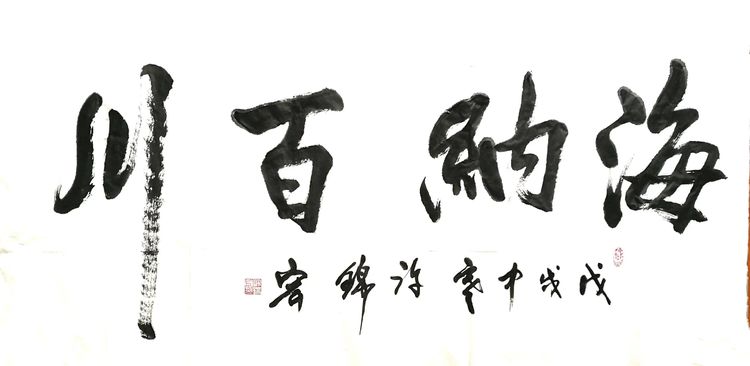 海納百川
戊戌中寒许錦容